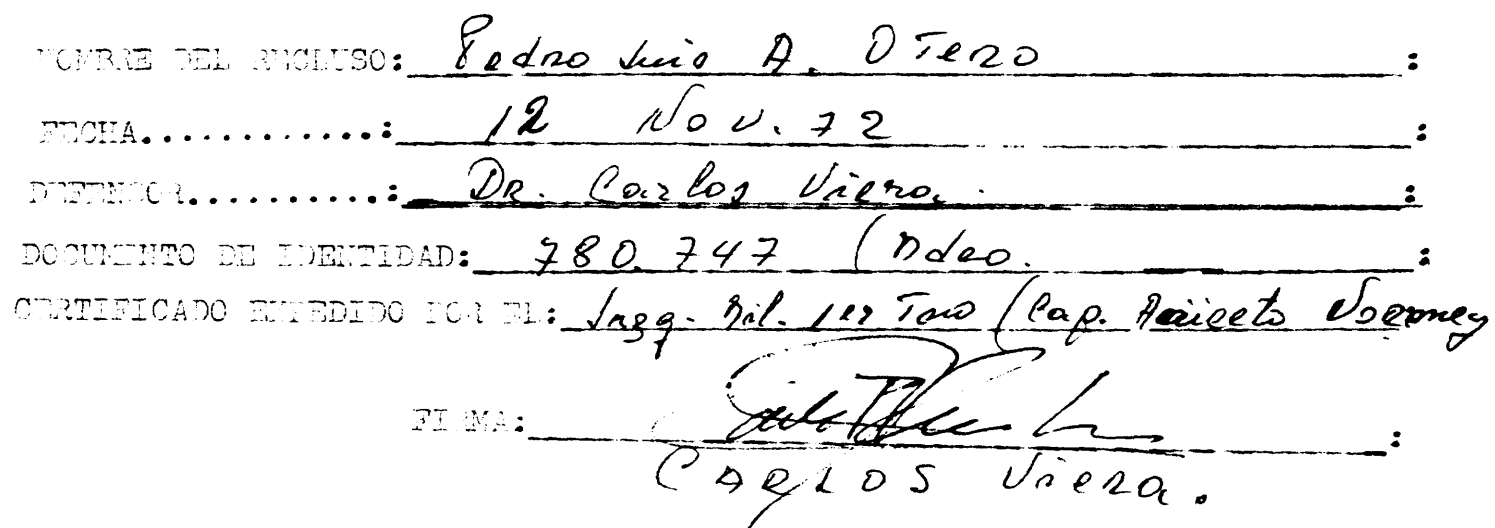 NOMBRE DEL RECLUSO: Pedro Luis A. Otero :
FECHA............: 12 Nov. 72 :
DEFENSOR..........: DR. Carlos Viera. :
DOCUMENTO DE IDENTIDAD: 780.747 (Mdeo. :
CERTIFICADO EXTEDIDO POR EL: Juzg. Mil. 1er Tno (Cap. Aniceto
FIRMA: :
CARLOS Viera.